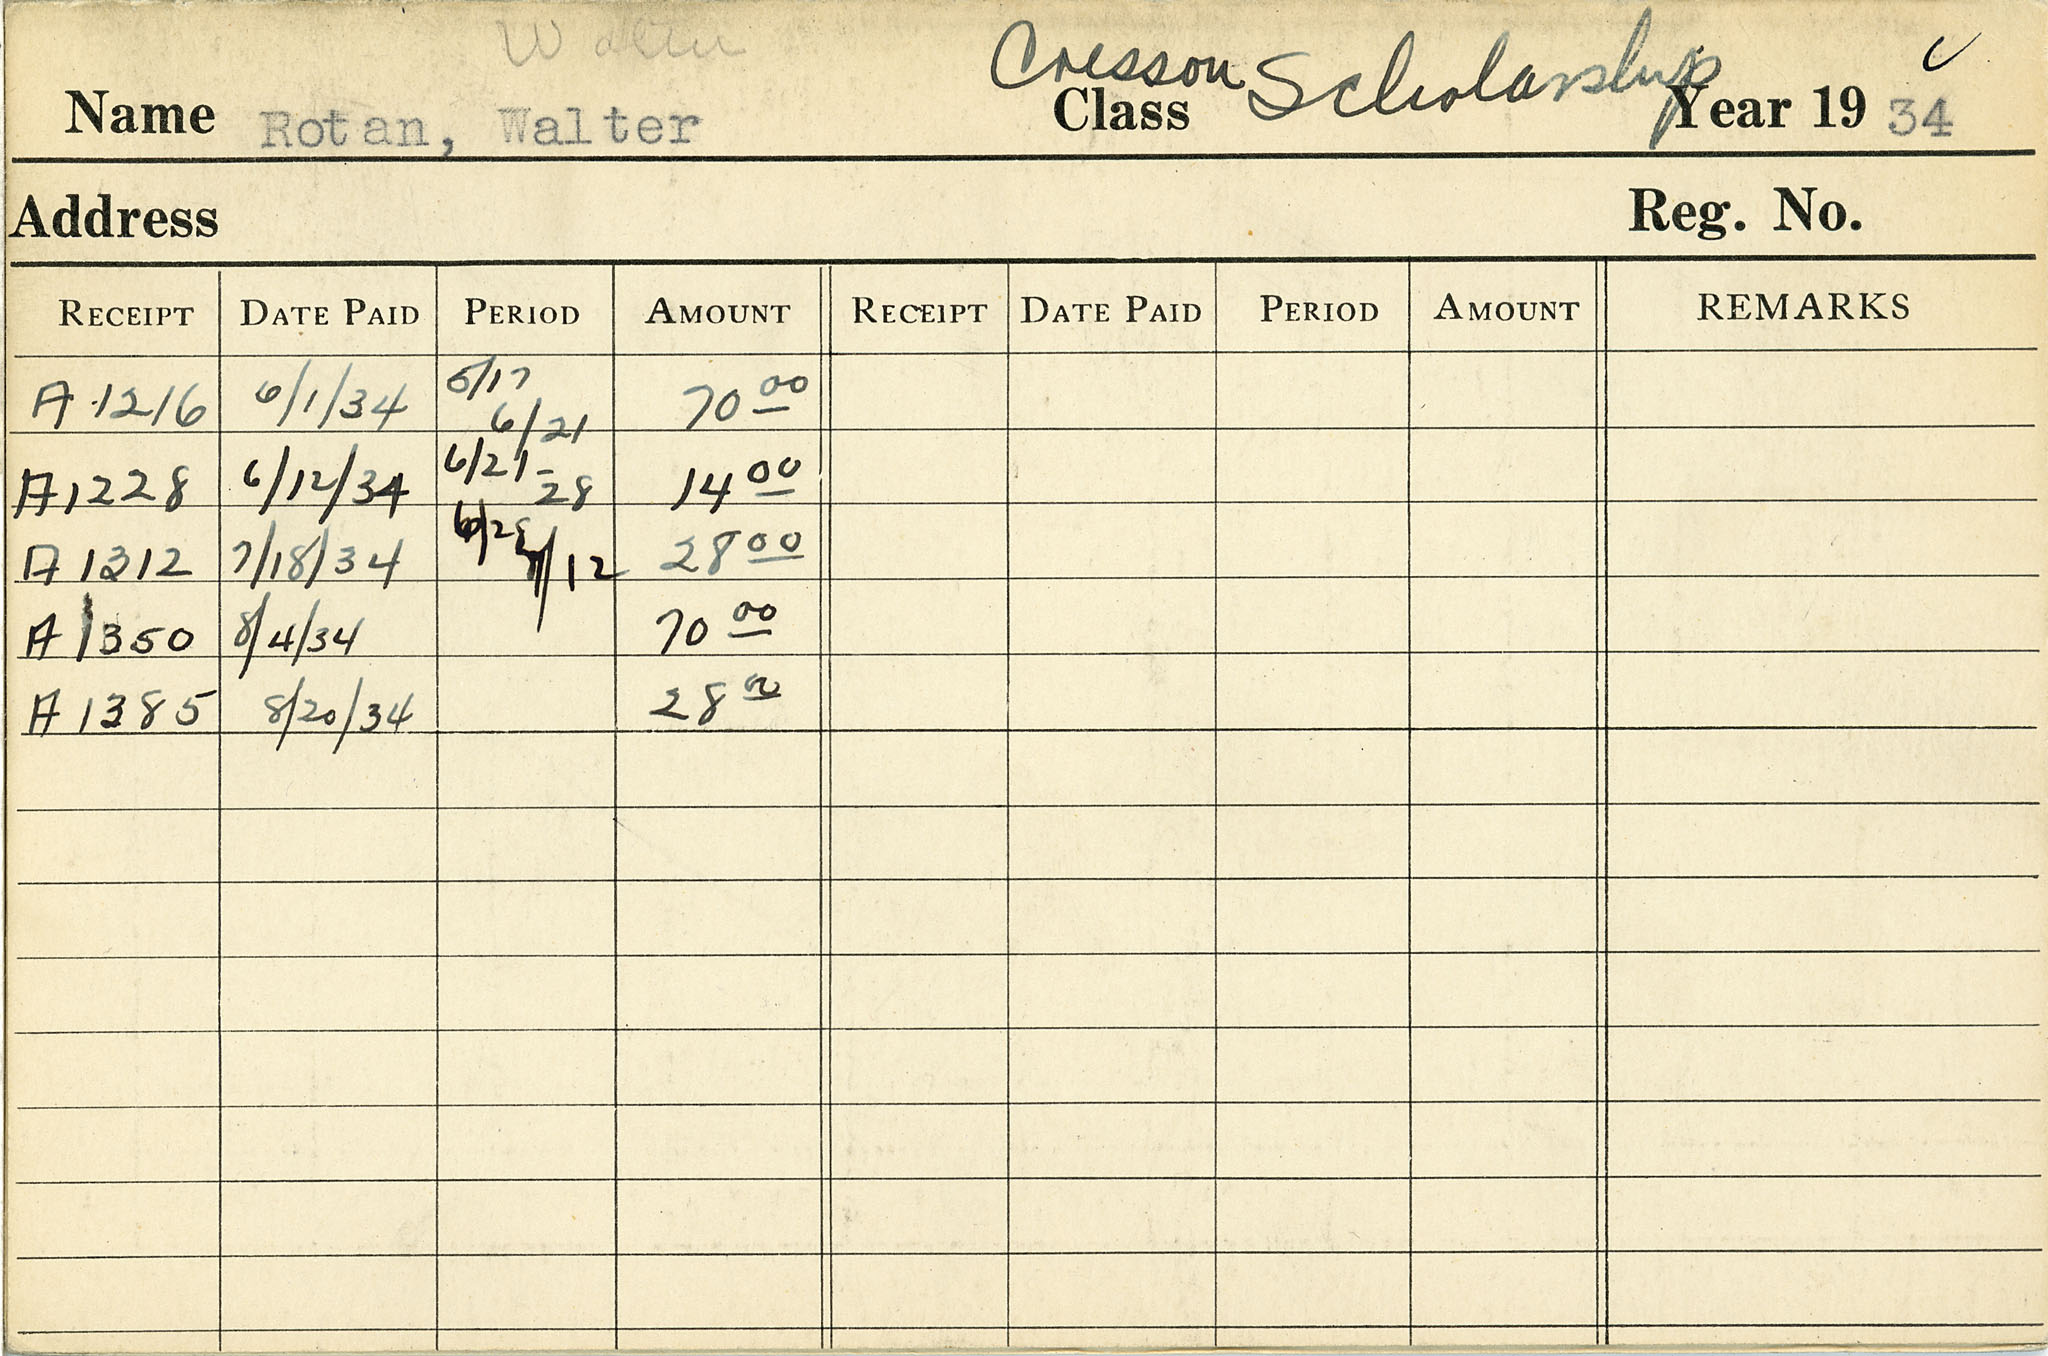 Walter
Cresson Scholarship
Name Rotan, Walter Class Year 19 34
Address Reg. No.
RECEIPT DATE PAID PERIOD AMOUNT RECEIPT DATE PAID PERIOD AMOUNT REMARKS
A 1216 6/1/34 5/17 6/21 70 00
A 1228 6/12/34 6/21-28 14 00
A 1312 7/18/34 6/28 7/12 28 00
A 1350 8/4/34 70 00
A 1385 8/20/34 28 00